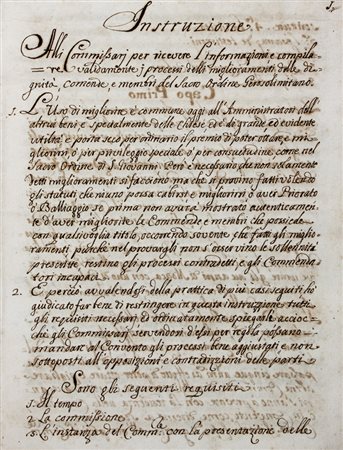 1.
Instruzione
Alli Commissarj per ricevere l'informazioni e compila=
=re validamente i processi delli miglioramenti delle di=
gnità comende, e membri del Sacro Ordine Gerosolimitano.
1. L'Uso di migliorire è commune oggi all'Amministratori dell'
altrui beni e specialmente delle Chiese ed è di grande ed evidente
utiltà e porta seco per ordinario il premio di poter ottare e mi=
gliorirsi ò per privileggio speciale ò per consuetudine come nel
Sacro Ordine di S. Giovanni Però è necessario che non solamente
detti miglioramenti si facciano ma che si provino fatti volendo
gli statuti che niuno possa cabirsi e migliorirsi ò aver Priorato
ò Balliaggio se prima non averà mostrato autenticamente
d'aver migliorite le Commende e membri che possiede
con qualsivoglia titolo occorrendo sovente che fatti gli miglio=
ramenti purche nel provargli non s'osservino le sollennità
prescritte restino gli processi contradetti e gli Commenda
tori incapaci
2. E perciò avvalendosi della prattica di più casi seguiti hò
giudicato far bene di restringere in questa instruzzione tutti
gli requisiti necessarj ed ordinatamente spiegarli accioc=
che gli Commissarj servendosi d'essi per regola possano
mandare al Convento gli processi bene aggiustati e non
sottoposti all'opposizioni e contradizioni delle parti
Sono gli seguenti requisiti
1. Il tempo
2. La commissione
3. L'instanza del Comm.re con la presentazione delle